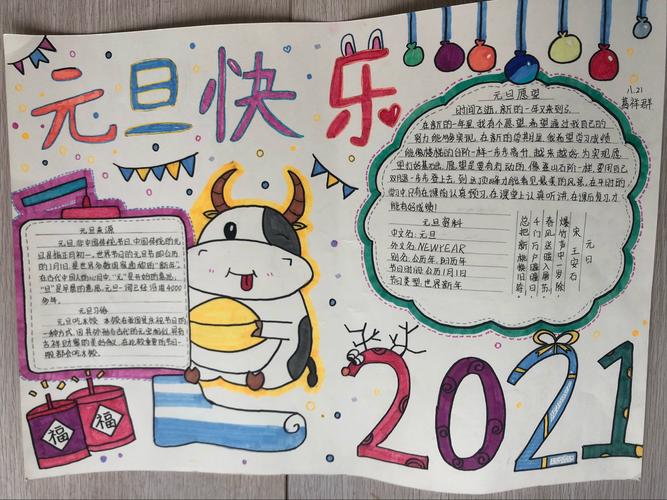 元旦快乐
八.21
葛祥群
元旦愿望
时间飞逝,新的一年又来到了。
在新的一年里,我有个愿望,希望通过我自己的
努力能够实现。在新的学期里,我希望学习成绩
能像楼梯的台阶一样一步一步高升,越来越好,为实现愿
望打好基础。愿望是要有行动的,像登山石阶一样,要用自己
双腿一步步登上去,到达顶峰才能看见最美的风景。在平时的
学习中,只有在课前认真预习,在课堂上认真听讲,在课后复习,才
能有好成绩!
元旦资料
中文名:元旦
外文名:NEWYEAR
别名:公历年、阳历年
节日时间:公历1月1日
节日类型:世界新年
元旦
宋 王安石
爆竹声中一岁除,
春风送暖入屠苏。
千门万户曈曈日,
总把新桃换旧符。
元旦来源
元旦,非中国传统节日,中国传统的元
旦是指正月初一。世界节日的元旦节即公历
的1月1日,是世界多数国家通称的“新年”。
在古代中国人的心目中,“元”是开始的意思,
“旦”是早晨的意思。元旦一词已经沿用4000
多年。
元旦习俗
元旦吃水饺
福
福
2021